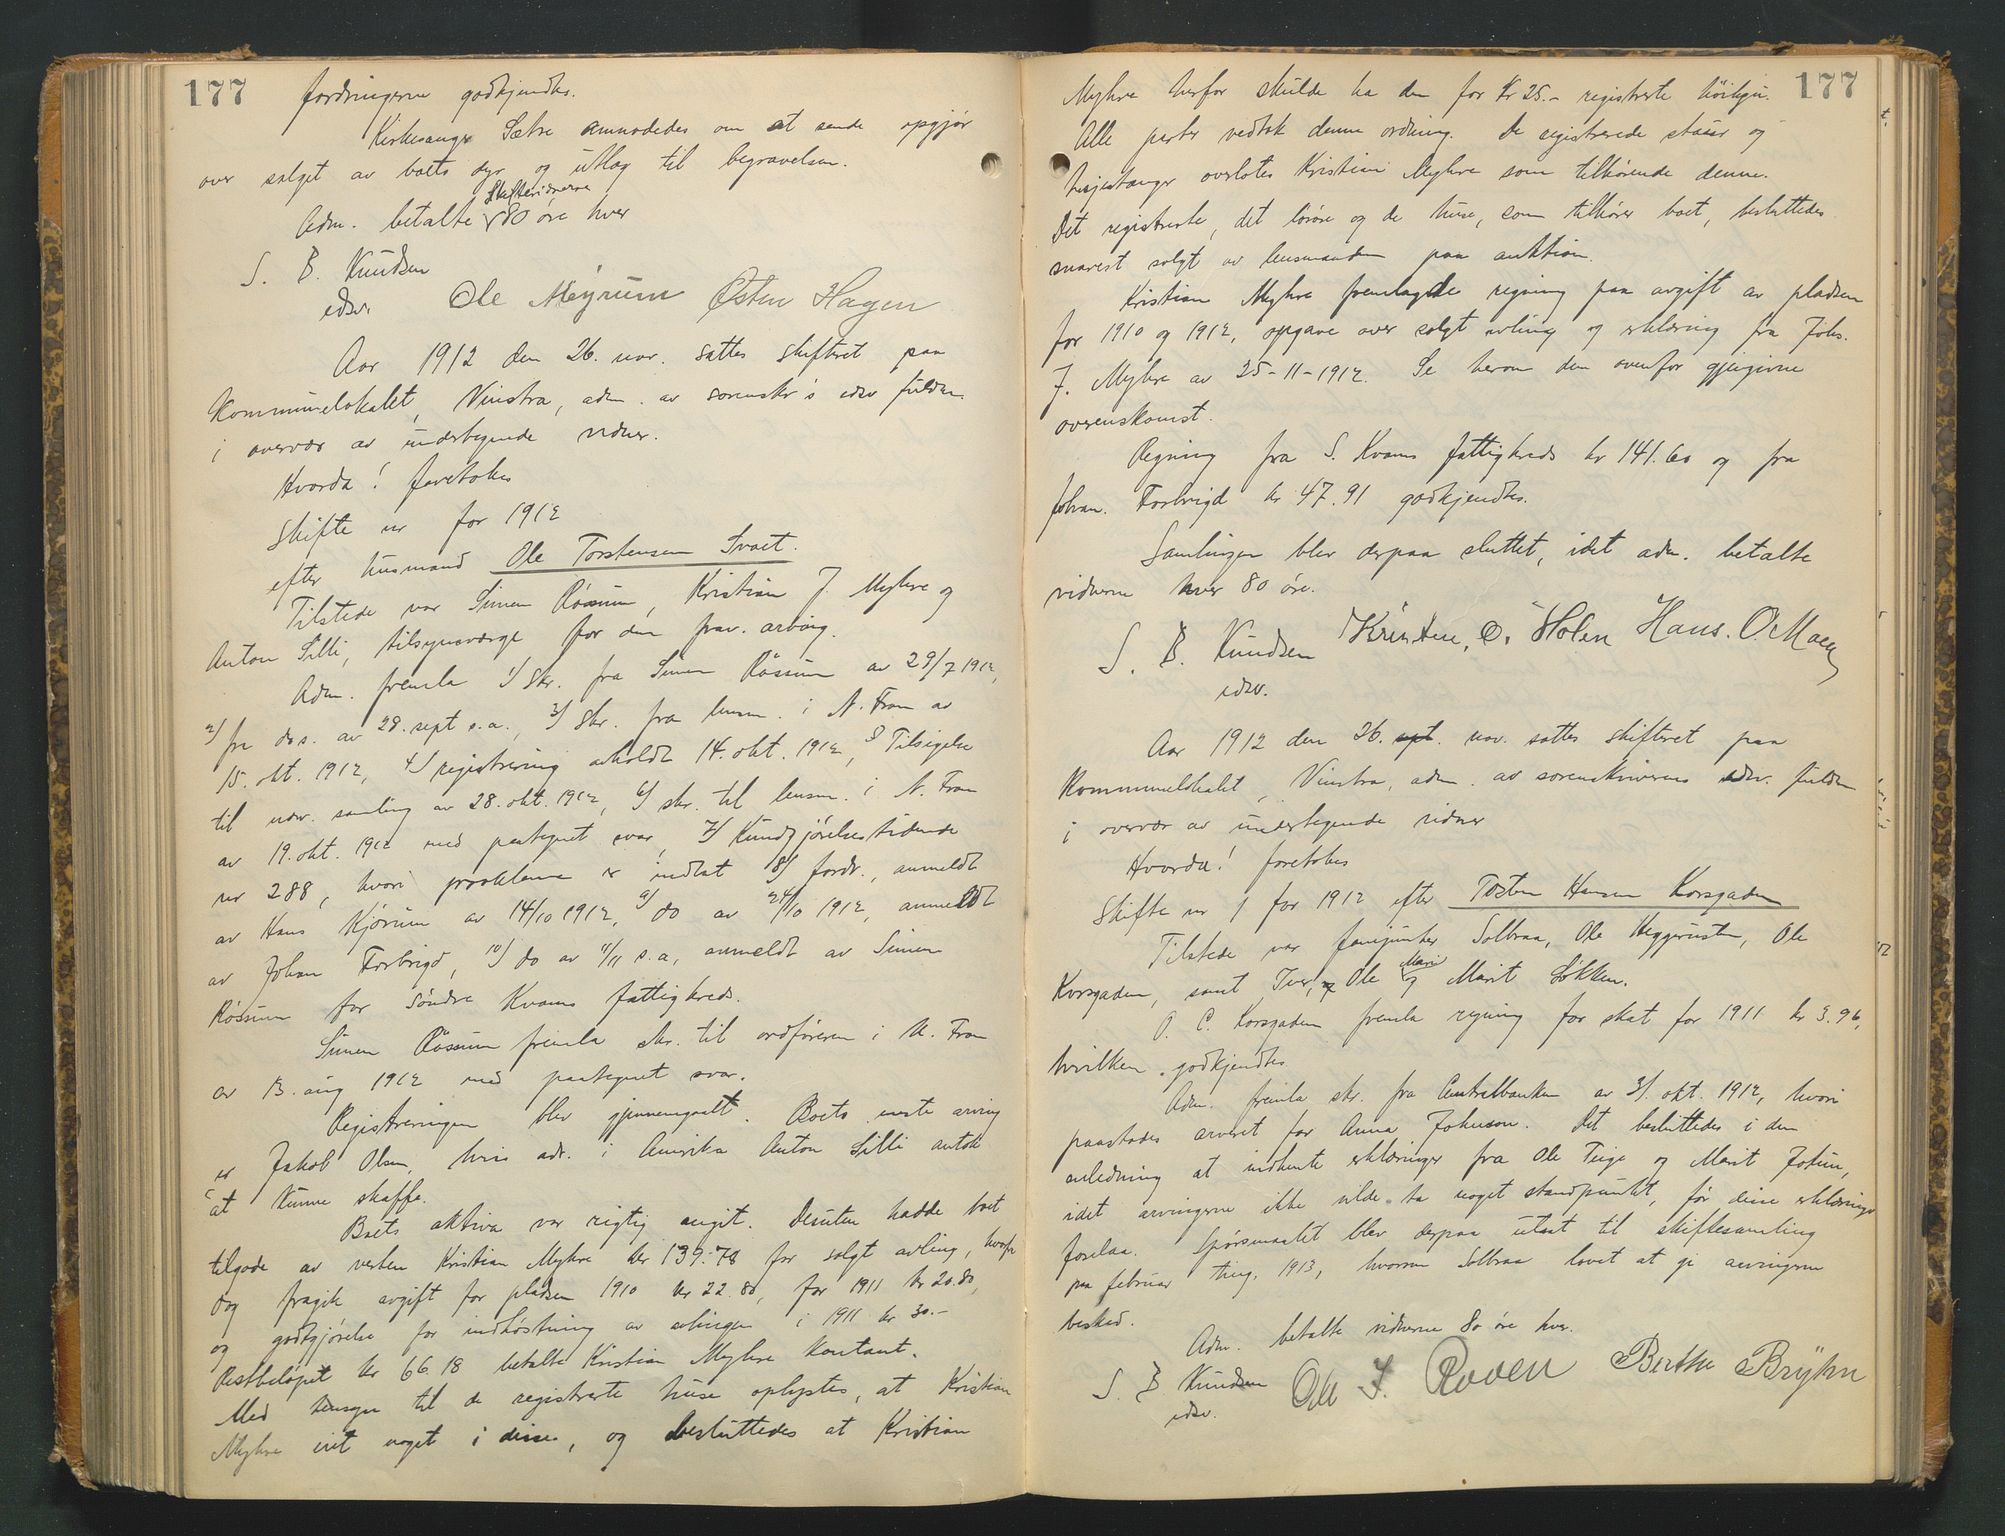 177
fordringerne godkjendtes.
Kirkesanger Sætre anmodedes om at sende opgjør
over salget av boets dyr og utlag til begravelsen.
Adm. betalte skiftevidnerne 80 øre hver
S. B. Knudsen
edsv.
Ole Meyrum Østen Hagen
Aar 1912 den 26. nov. sattes skifteret paa
Kommunelokalet, Vinstra, adm. av sorenskr's edsv fuldm.
i overvær av undertegnede vidner.
Hvorda! foretokes
Skifte nr for 1912
efter husmand Ole Torstensen Svaet.
Tilstede var Simen Røssum, Kristian J. Myhre og
Anton Lilli, tilsynsværge for den frav. arving.
Adm. fremla 1) skr. fra Simen Røssum av 29/7 1912,
2) fra do s. av 28. sept s.a., 3) skr. fra lensm. i N. Fron av
15. okt. 1912, 4) registrering avholdt 14. okt. 1912, 5) Tilsigelse
til nærv. samling av 28. okt. 1912, 6) skr. til lensm. i N. Fron
av 19. okt. 1912 med paategnet svar, 7) Kundgjørelsestidende
nr 288, hvori proklama er indtat 8) fordr., anmeldt
av Hans Kjørum av 14/10 1912, 9) do av 24/10 1912, anmeldt
av Johan Forbrigd, 10) do av 11/11 s.a., anmeldt av Simen
Røssum for Søndre Kvams fattigkreds.
Simen Røssum fremla skr. til ordføreren i N. Fron
av 13. aug 1912 med paategnet svar.
Registreringen blev gjennemgaat. Boets eneste arving
er Jakob Olsen, hvis adr. i Amerika Anton Lilli antok
at kunne skaffe.
Boets aktiva var rigtig angit. Desuten hadde boet
tilgode av verten Kristian Myhre kr 139.78 for solgt avling, hvorfra
dog fragik avgift for pladsen 1910 kr 22.80, for 1911 kr 20.80,
og godtgjørelse for indhøstning av avlingen i 1911 kr 30.-
Restbeløpet kr 66.18 betalte Kristian Myhre kontant.
Med hensyn til de registrerte huse oplystes, at Kristian
Myhre eiet noget i disse, og besluttedes at Kristian
177
Myhre herfor skulde ha den for kr 25.- registrerte
Alle parter vedtok denne ordning. De registrerede staur og
hesjestænger overlotes Kristian Myhre som tilhørende denne.
Det registrerte, det løsøre og de huse, som tilhører boet, besluttedes
snarest solgt av lensmanden paa auktion.
Kristian Myhre fremlagde regning paa avgift av pladsen
for 1910 og 1912, opgave over solgt avling og erklæring fra Johs.
J. Myhre av 25-11-1912. Se herom den ovenfor gjengivne
overenskomst.
Regning fra S. Kvams fattigkreds kr 141.60 og fra
Johan. Forbrigd kr 47.91 godkjendtes.
Samlingen blev derpaa sluttet, idet adm. betalte
vidnerne hver 80 øre.
S. B. Knudsen
edsv.
Kristen. O. Holen Hans. O. Moen
Aar 1912 den 26. sept. nov. sattes skifteret paa
Kommunelokalet, Vinstra, adm. av sorenskriverens edsv. fuldm
i overvær av undertegnede vidner
Hvorda! foretokes
Skifte nr 1 for 1912 efter Tosten Hansen Korsgaden
Tilstede var fanejunker Solbraa, Ole Heggerusten, Ole
Korsgaden, samt Iver, Ole Mari og Marit Løkken.
O. C. Korsgaden fremla regning for skat for 1911 kr 3.96,
hvilken godkjendtes
Adm. fremla skr. fra Centralbanken av 31. okt. 1912, hvori
paastodes arveret for Anna Johnson. Det besluttedes i den
anledning at indhente erklæringer fra Ole Teige og Marit
idet arvingerne ikke vilde ta noget standpunkt, før disse erklæringer
forelaa. Spørsmaalet blev derpaa utsat til skiftesamling
paa februar ting. 1913, hvorom Solbraa lovet at gi arvingerne
besked.
Adm. betalte vidnerne 80 øre hver.
S. B. Knudsen
edsv.
Ole I. Roven Berthe Bryhn